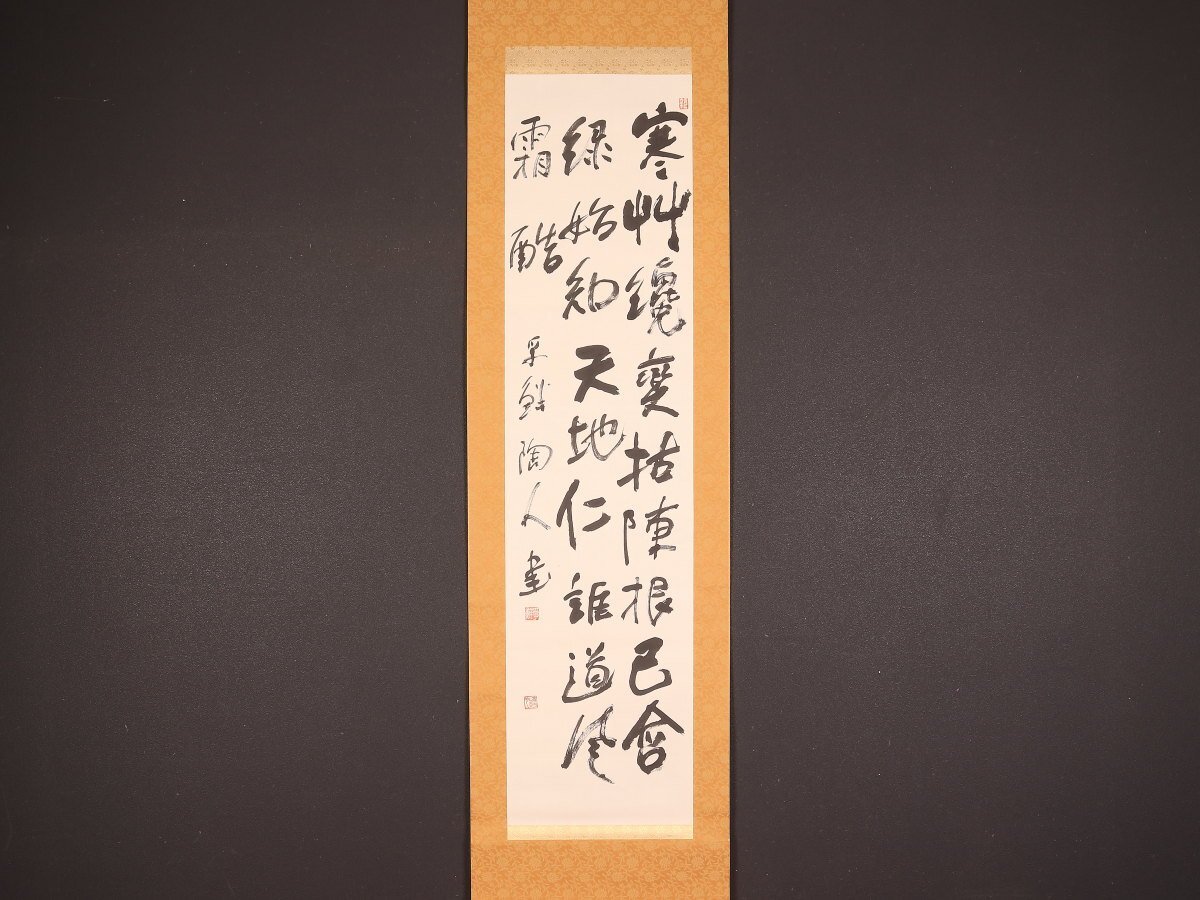 寒艸纔変枯陳根已含
緑始知天地仁誰道風
霜酷
陶人